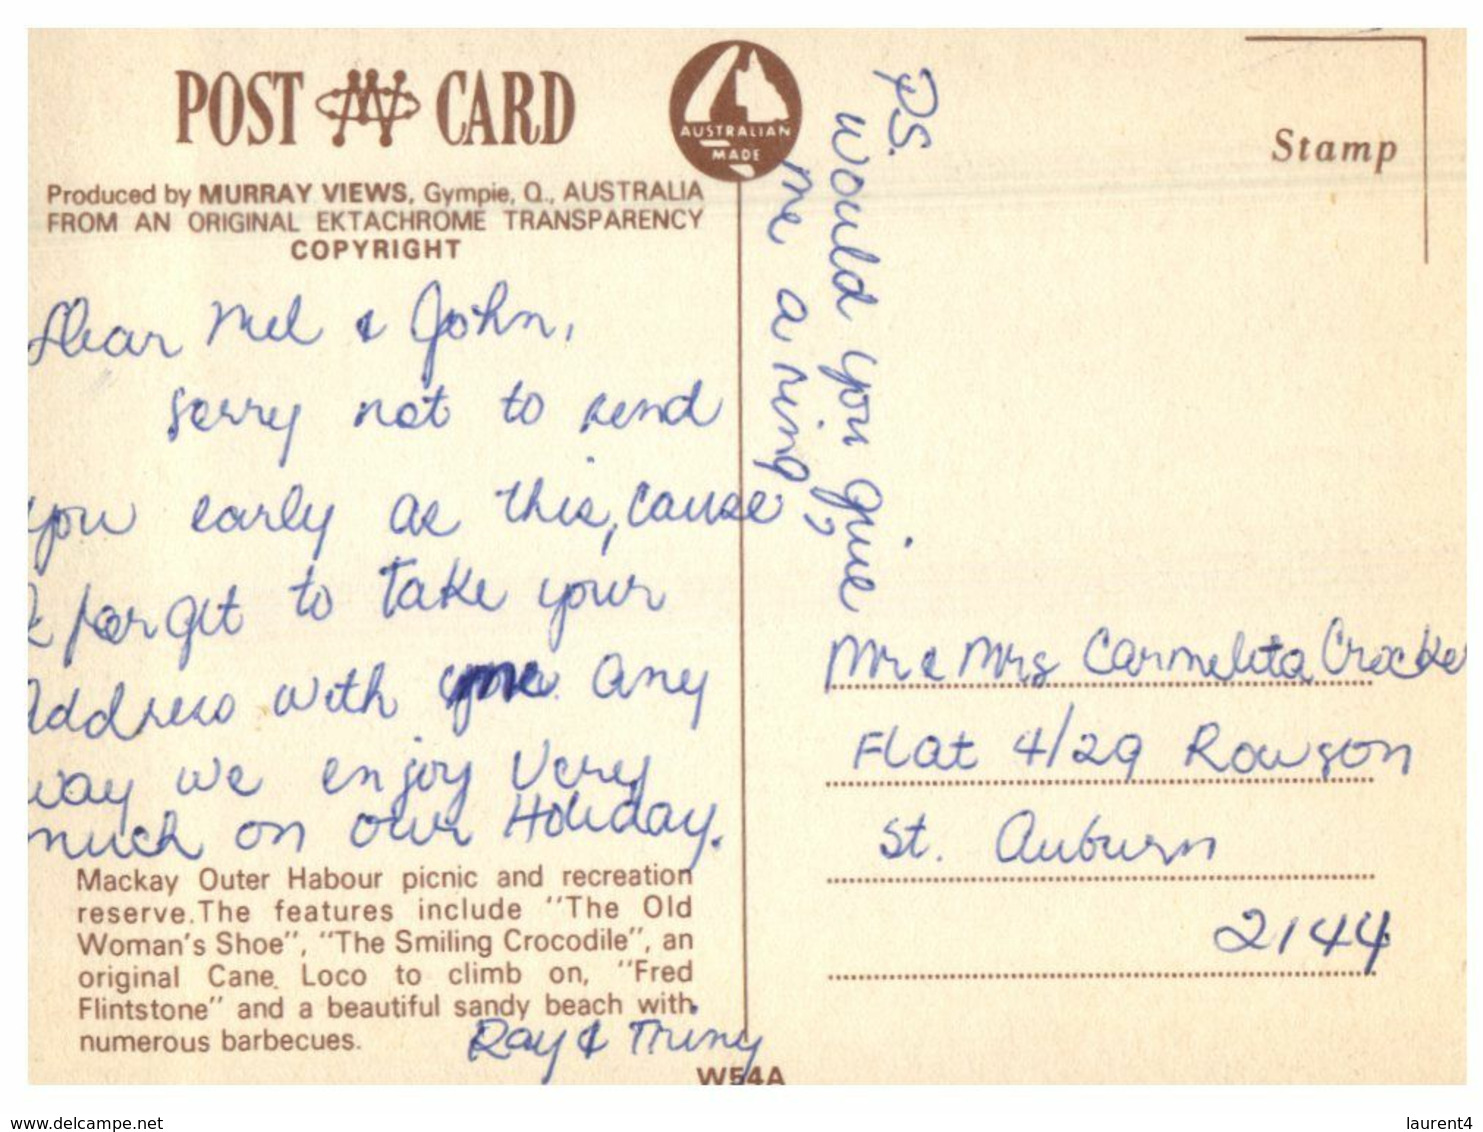 POST CARD
AUSTRALIAN
MADE
Produced by MURRAY VIEWS, Gympie, Q., AUSTRALIA
FROM AN ORIGINAL EKTACHROME TRANSPARENCY
COPYRIGHT
Dear Mel & John,
Sorry not to send
you early as this, cause
I forget to take your
Address with me. any
way we enjoy very
much on our Holiday.
Mackay Outer Habour picnic and recreation
reserve.The features include "The Old
Woman's Shoe", "The Smiling Crocodile", an
original Cane Loco to climb on, "Fred
Flintstone" and a beautiful sandy beach with
numerous barbecues.
Ray & Triny
W54A
P.S.
would you give
me a ring,
Stamp
Mr & Mrs Carmelita Crocke
Flat 4/29 Rawson
St. Auburn
2144
www.delcampe.net
laurent4